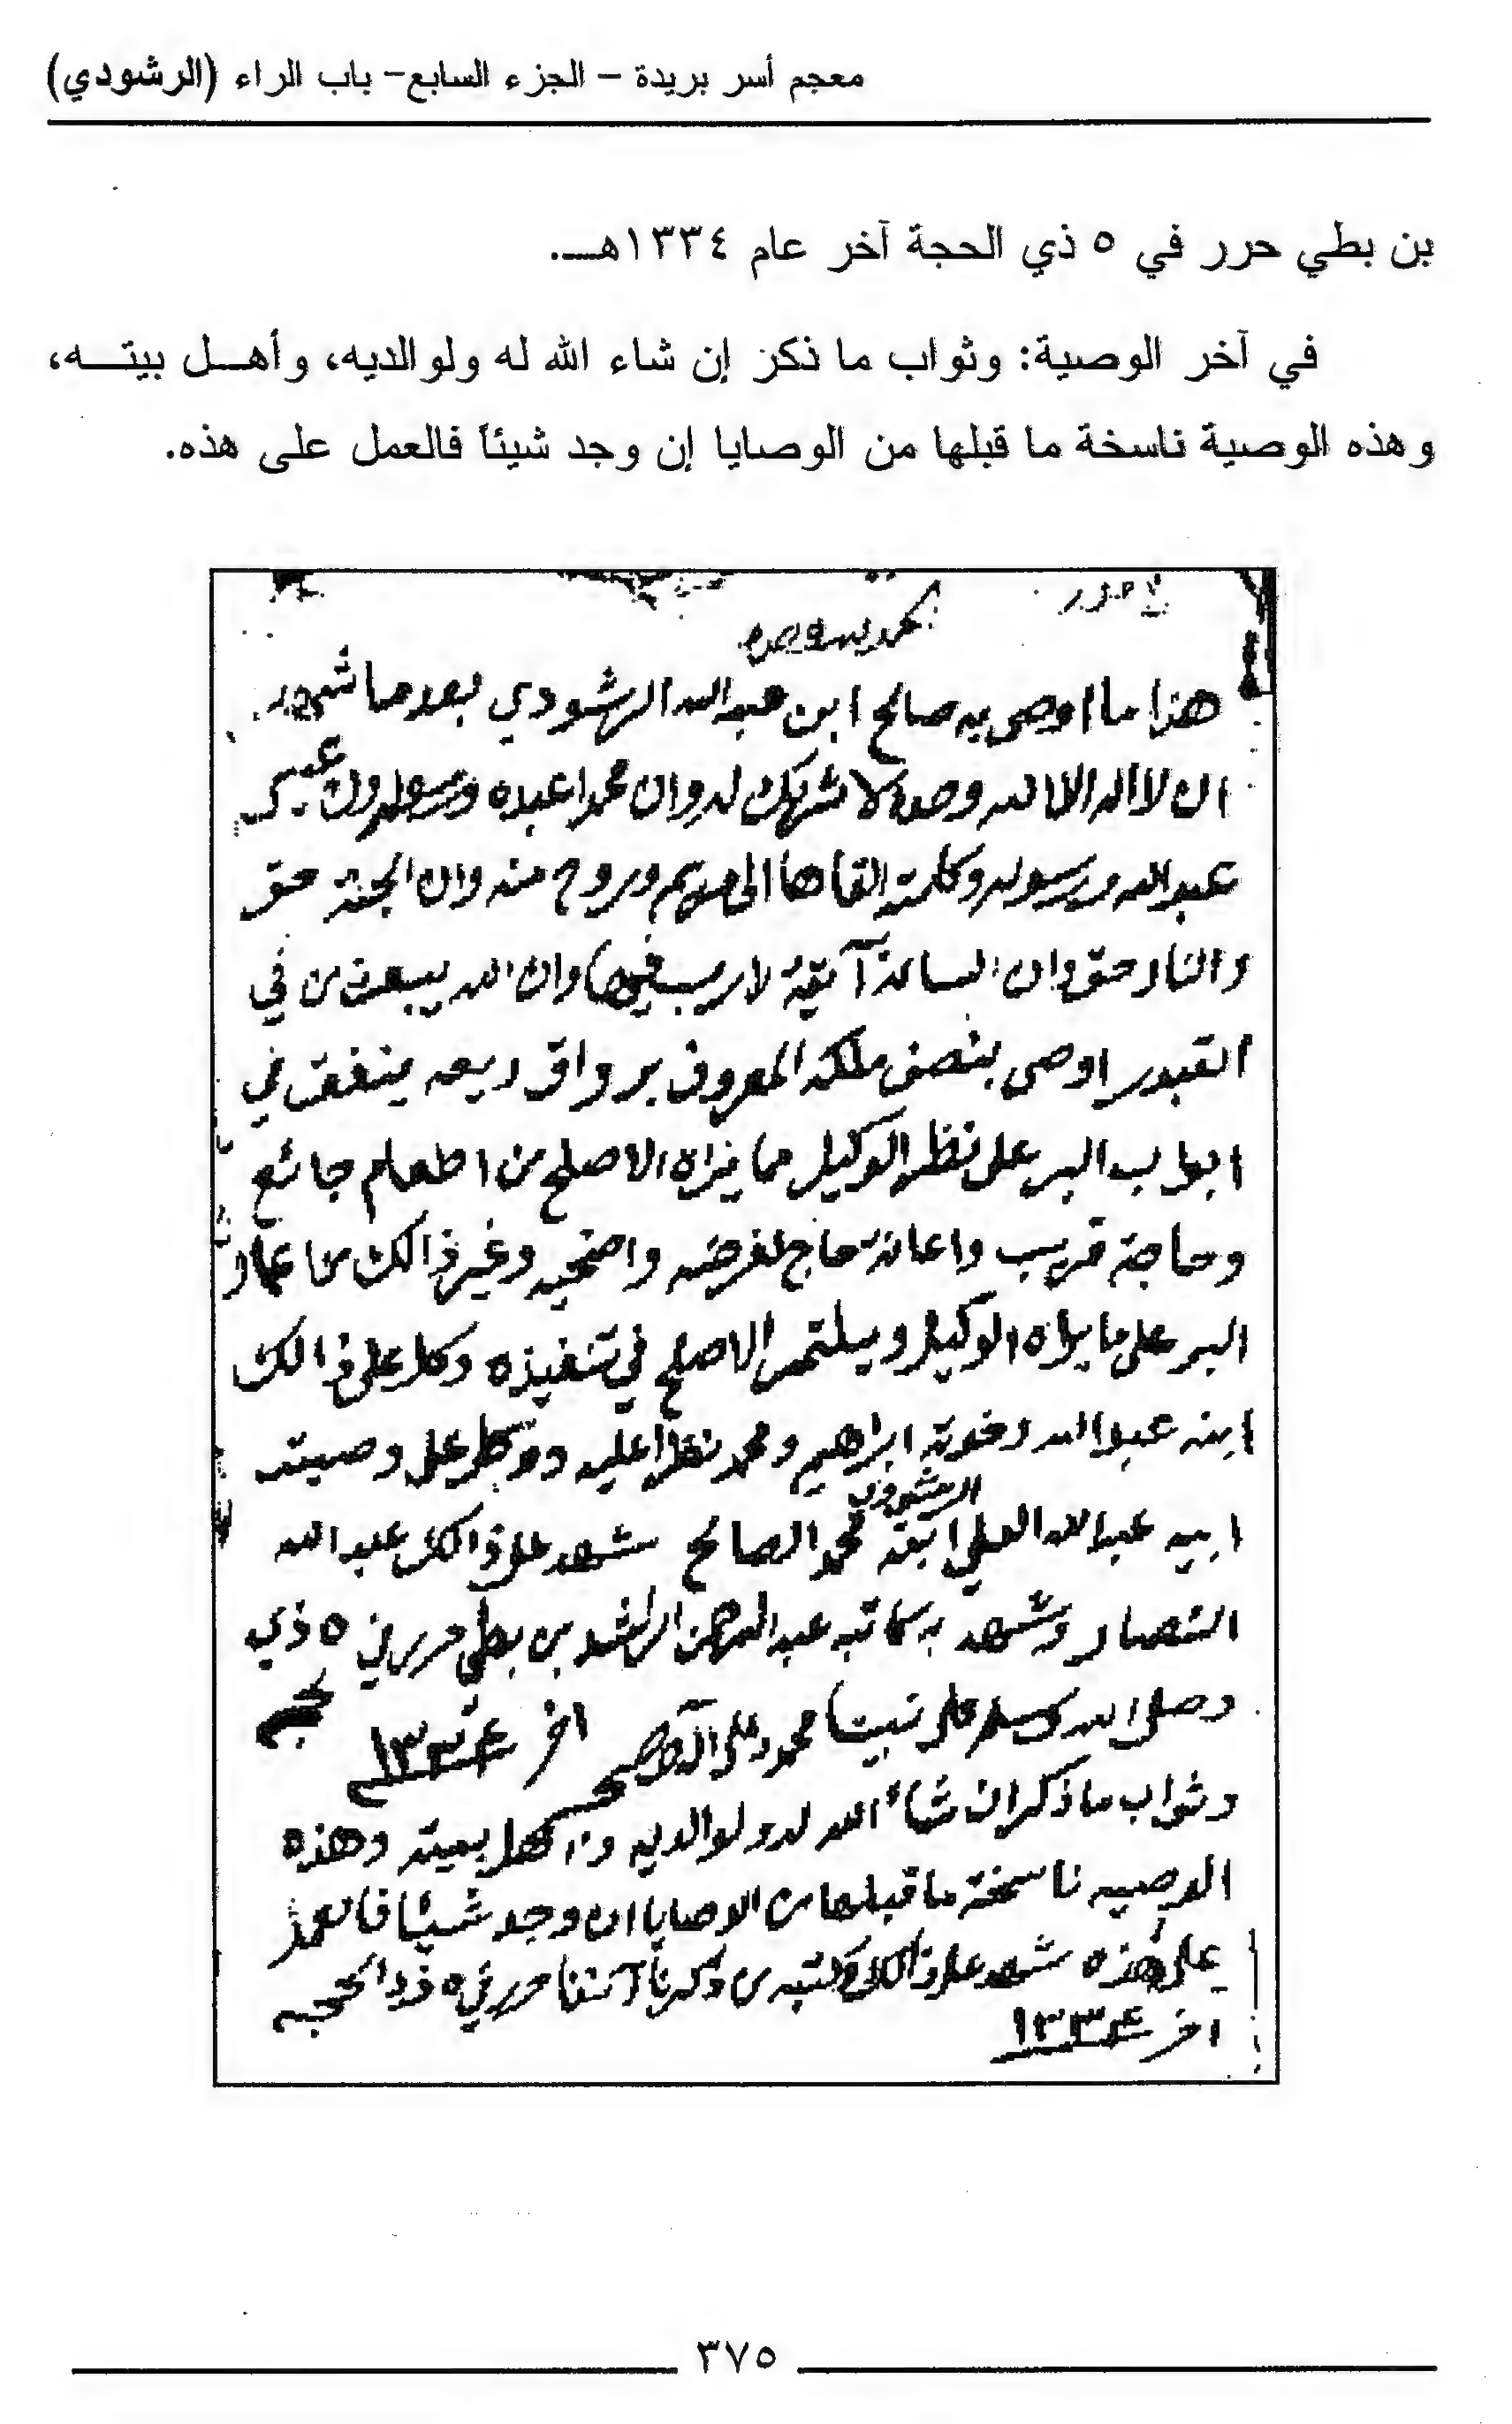 معجم أسر بريدة – الجزء السابع– باب الراء (الرشودي)
بن بطي حرر في ٥ ذي الحجة آخر عام ١٣٣٤هـ.
في آخر الوصية: وثواب ما ذكر إن شاء الله له ولوالديه، وأهل بيته،
وهذه الوصية ناسخة ما قبلها من الوصايا إن وجد شيئاً فالعمل على هذه.
هذا ما اوصى به صالح ابن عبدالله الرشودي بعد ما شهد
ان لا اله الا الله وحده لا شريك له وان محمدا عبده ورسوله وان عيسى
عبدالله ورسوله وكلمته القاها الى مريم وروح منه وان الجنة حق
والنار حق وان الساعة آتية لا ريب فيها وان الله يبعث من في
القبور اوصى بنصف ملكه المعروف برواق ريعه ينفق في
ابواب البر على نظر الوكيل مما يراه الاصلح من اطعام جائع
وحاجة قريب واعانة حاج لفرضه واضحيه وغير ذالك من اعمال
البر على ما يراه الوكيل ويلتمس الاصلح في تنفيذه وكل على ذالك
ابنه عبدالله واخوته ابراهيم ومحمد نظرا عليه ووكل على وصيته
الرشودي
ابيه عبدالله العلي ابنه محمد الصالح شهد على ذالك عبدالله
النصار وشهد به كاتبه عبدالرحمن الراشد بن بطي حرر في ٥ ذي
الحجه
وصلى الله وسلم على نبينا محمد وعلى آله وصحبه اخر ١٣٣٤
وثواب ما ذكر ان شاء الله له ولوالديه واهل بيته وهذه
الوصيه ناسخة ما قبلها من الاصايا ان وجد شيئا فالعمل
على هذه شهد على ذالك وكتبه من ذكرنا آنفا حرر في ٥ ذو الحجه
اخر ١٣٣٤
٣٧٥